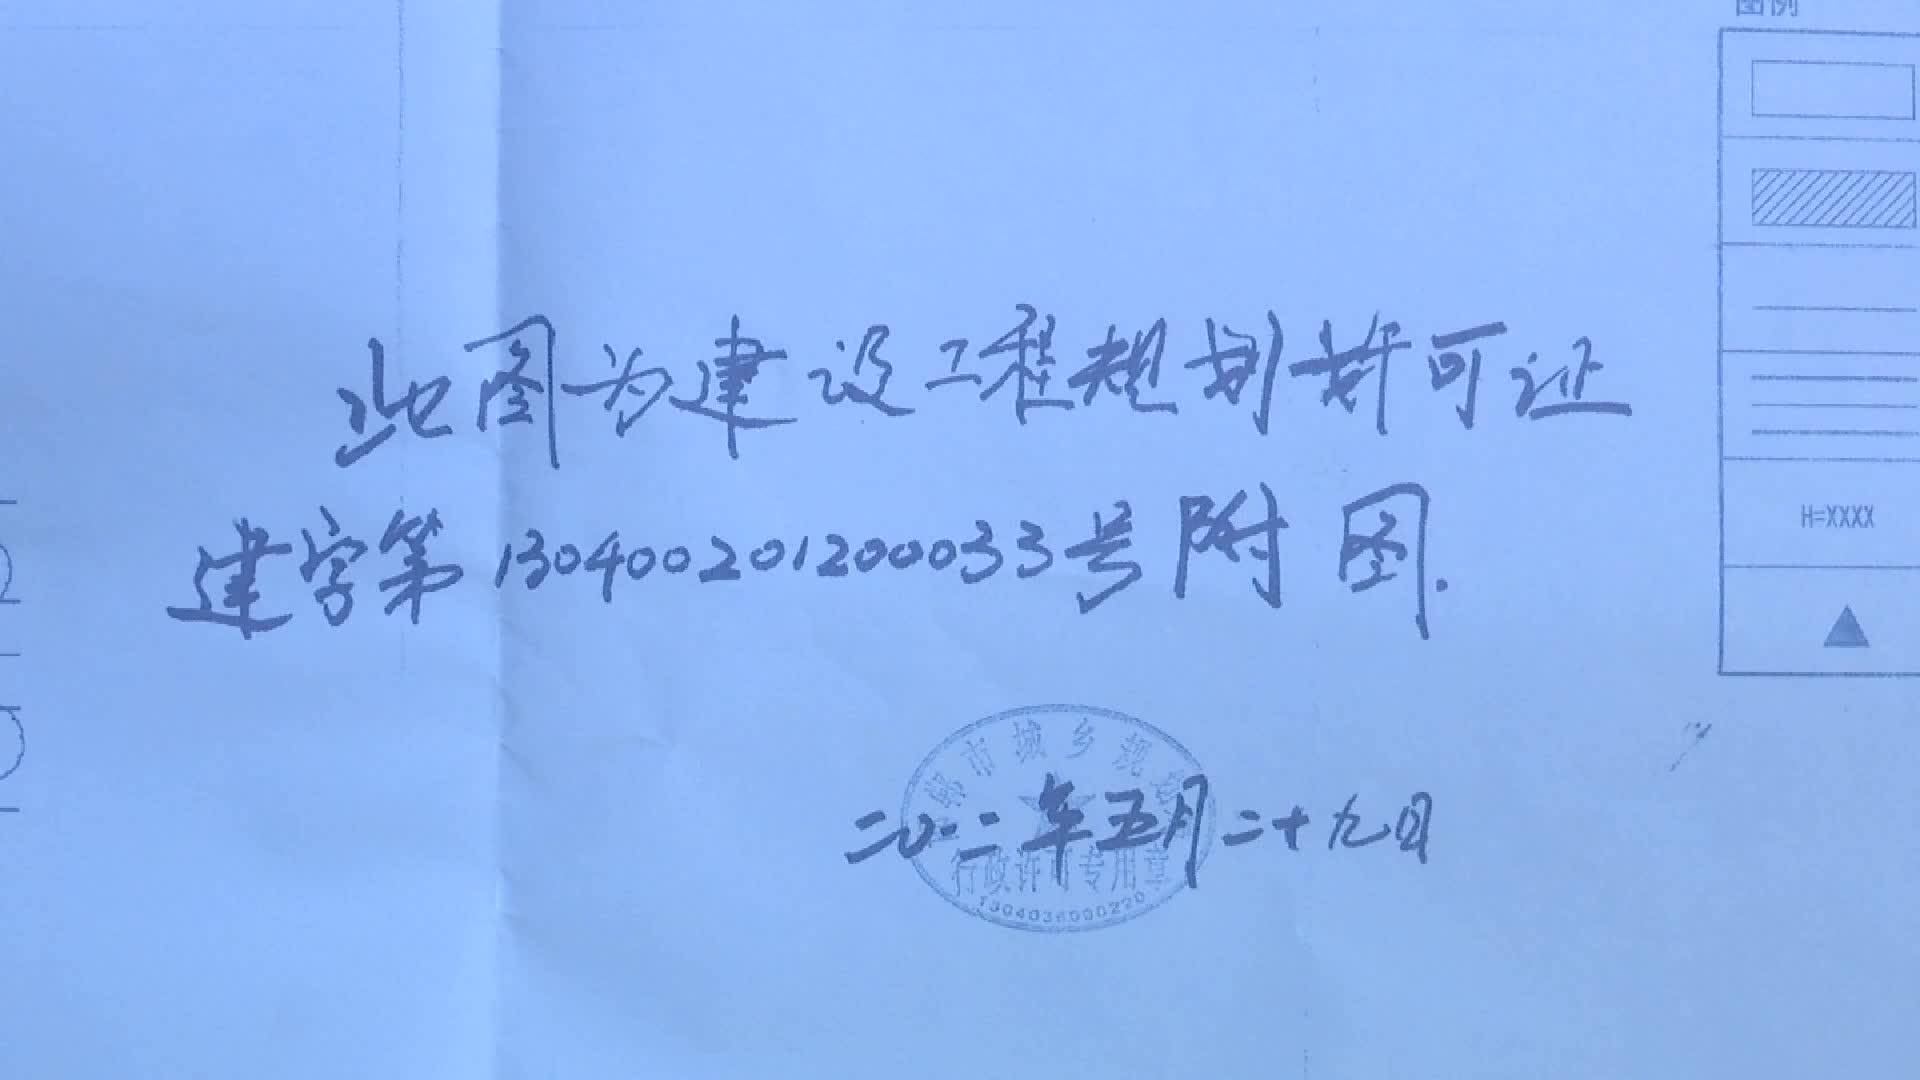 图例
此图为建设工程规划许可证
建字第130400201200033号附图.
H=XXXX
郸市城乡规
二〇一二年五月二十九日
行政许可专用章